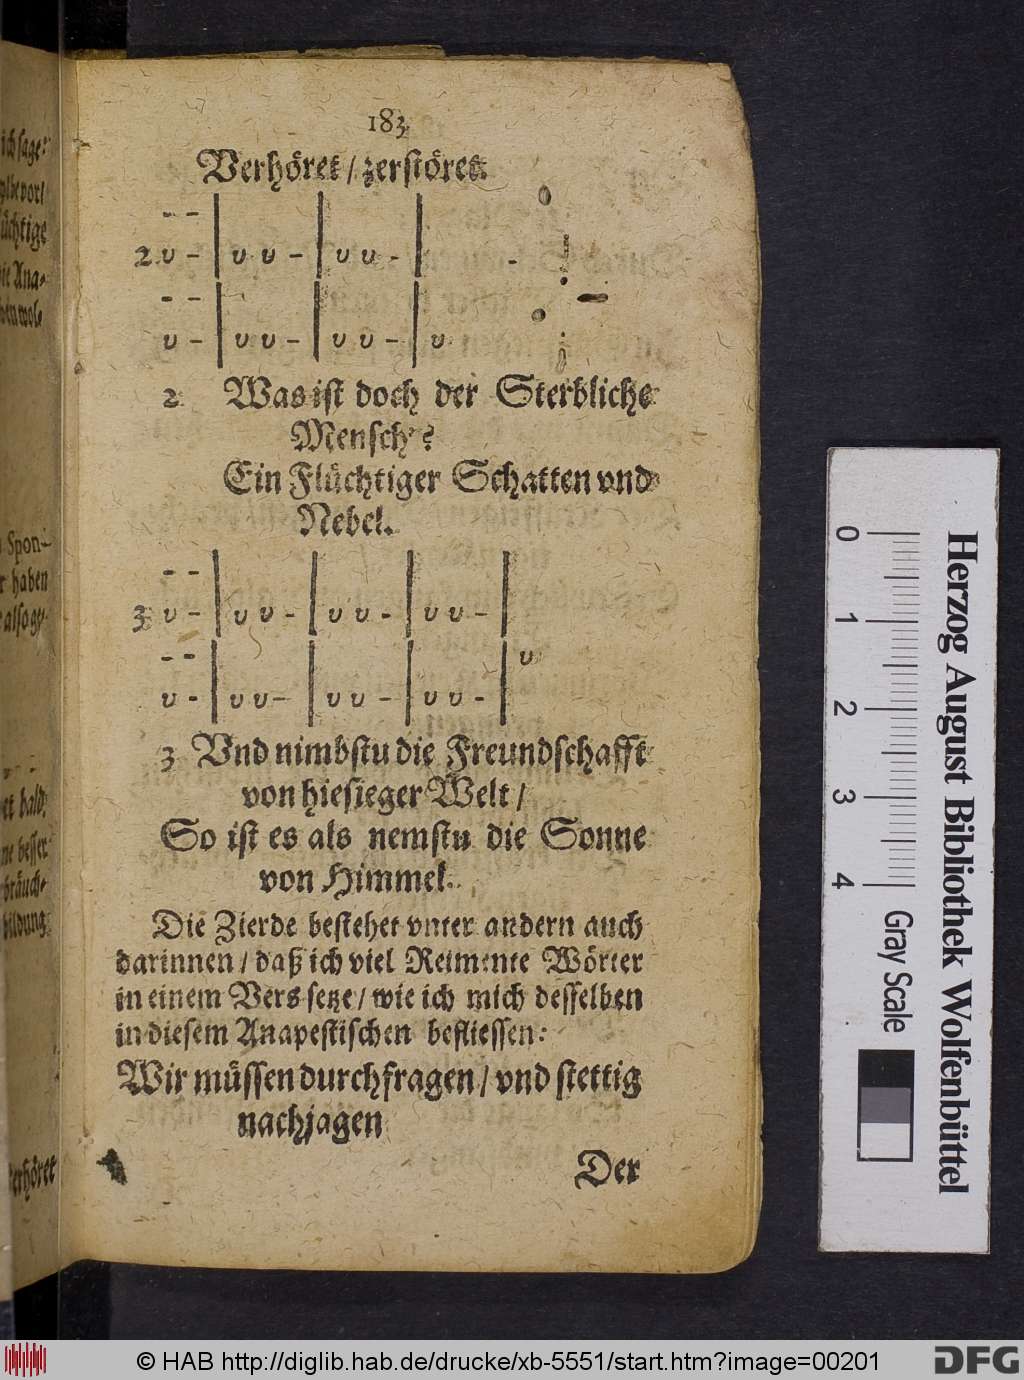 183
Verhöret / zerstöret.
- - | | |
2. υ - | υ υ - | υ υ - |
- - | | |
υ - | υ υ - | υ υ - | υ
2 Was ist doch der Sterbliche
Mensch?
Ein Flüchtiger Schatten vnd
Nebel.
- - | | | |
3. υ - | υ υ - | υ υ - | υ υ - |
- - | | | | υ
υ - | υ υ - | υ υ - | υ υ - |
3 Vnd nimbstu die Freundschafft
von hiesieger Welt /
So ist es als nemstu die Sonne
von Himmel.
Die Zierde bestehet vnter andern auch
darinnen / daß ich viel Reimente Wörter
in einem Vers setze / wie ich mich desselben
in diesem Anapestischen befliessen:
Wir müssen durchfragen / vnd stettig
nachjagen
Der
ich sage:
üchtige
Spon-
haben
bald
besser
bildung
Verhöret
0 1 2 3 4
Gray Scale
Herzog August Bibliothek Wolfenbüttel
© HAB http://diglib.hab.de/drucke/xb-5551/start.htm?image=00201
DFG